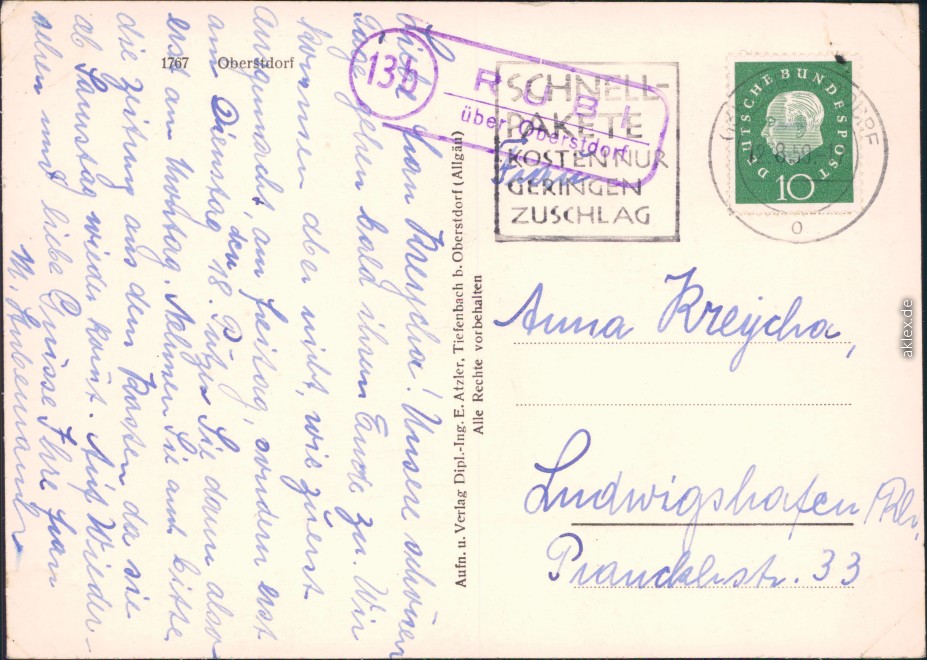 1767 Oberstdorf
Liebe Frau Kreycha! Unsere schönen
Tage gehen bald ihrem Ende zu. Wir
kommen aber nicht, wie zuerst
ausgemacht, am Freitag, sondern erst
am Dienstag, den 18.
erst am Montag. Nehmen Sie auch bitte
die Zeitung aus dem Kasten, da sie
ab Samstag wieder kommt. Auf Wieder-
sehen und liebe Grüsse Ihre Frau
M.
Aufn. u. Verlag Dipl.-Ing. E. Atzler, Tiefenbach b. Oberstdorf (Allgäu)
Alle Rechte vorbehalten
13b
RUBI
über Oberstdorf
SCHNELL-
PAKETE
KOSTEN NUR
GERINGEN
ZUSCHLAG
DEUTSCHE BUNDESPOST
10
Frau
Anna Kreycha,
Ludwigshafen/Rh,
Pranckhstr. 33
aklex.de